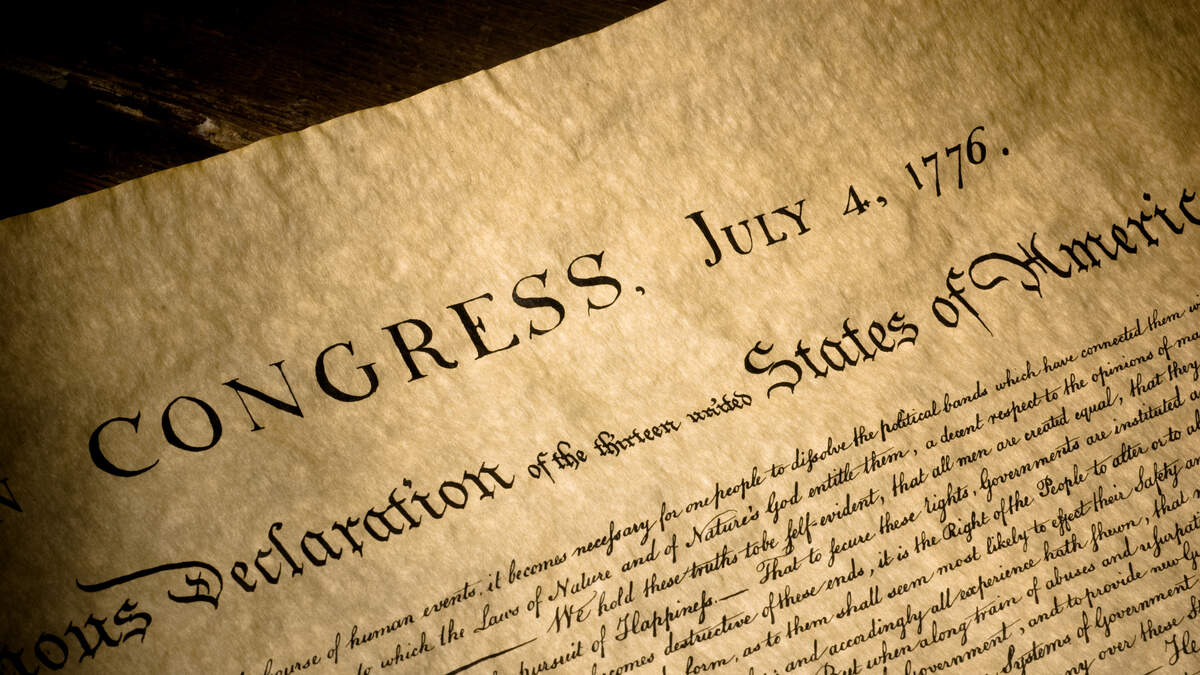 N CONGRESS, JULY 4, 1776.
mous Declaration of the thirteen united States of Americ
ourse of human events, it becomes neceſsary for one people to diſsolve the political bands which have connected them w
to which the Laws of Nature and of Nature's God entitle them, a decent respect to the opinions of ma
— We hold these truths to be ſelf-evident, that all men are created equal, that they
pursuit of Happineſs.— That to ſecure these rights, Governments are instituted a
comes destructive of these ends, it is the Right of the People to alter or to ab
form, as to them shall seem most likely to effect their Safety an
; and accordingly all experience hath ſhewn, that
But when a long train of abuses and uſurpati
Government, and to provide new G
Systems of Government
ny over these St
He